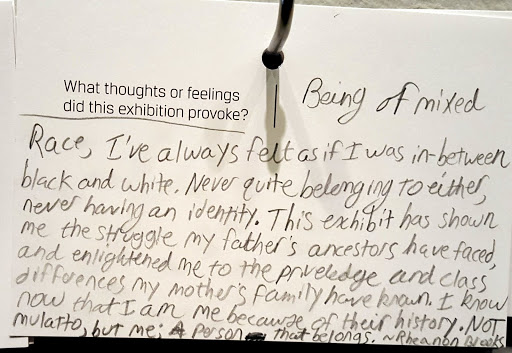 What thoughts or feelings
did this exhibition provoke?
Being of mixed
Race, I've always felt as if I was in-between
black and white. Never quite belonging to either,
never having an identity. This exhibit has shown
me the struggle my father's ancestors have faced,
and enlightened me to the priveledge and class
differences my mother's family have known. I know
now that I am me because of their history. NOT
mulatto, but me; A person that belongs. ~Rheannon Brooks